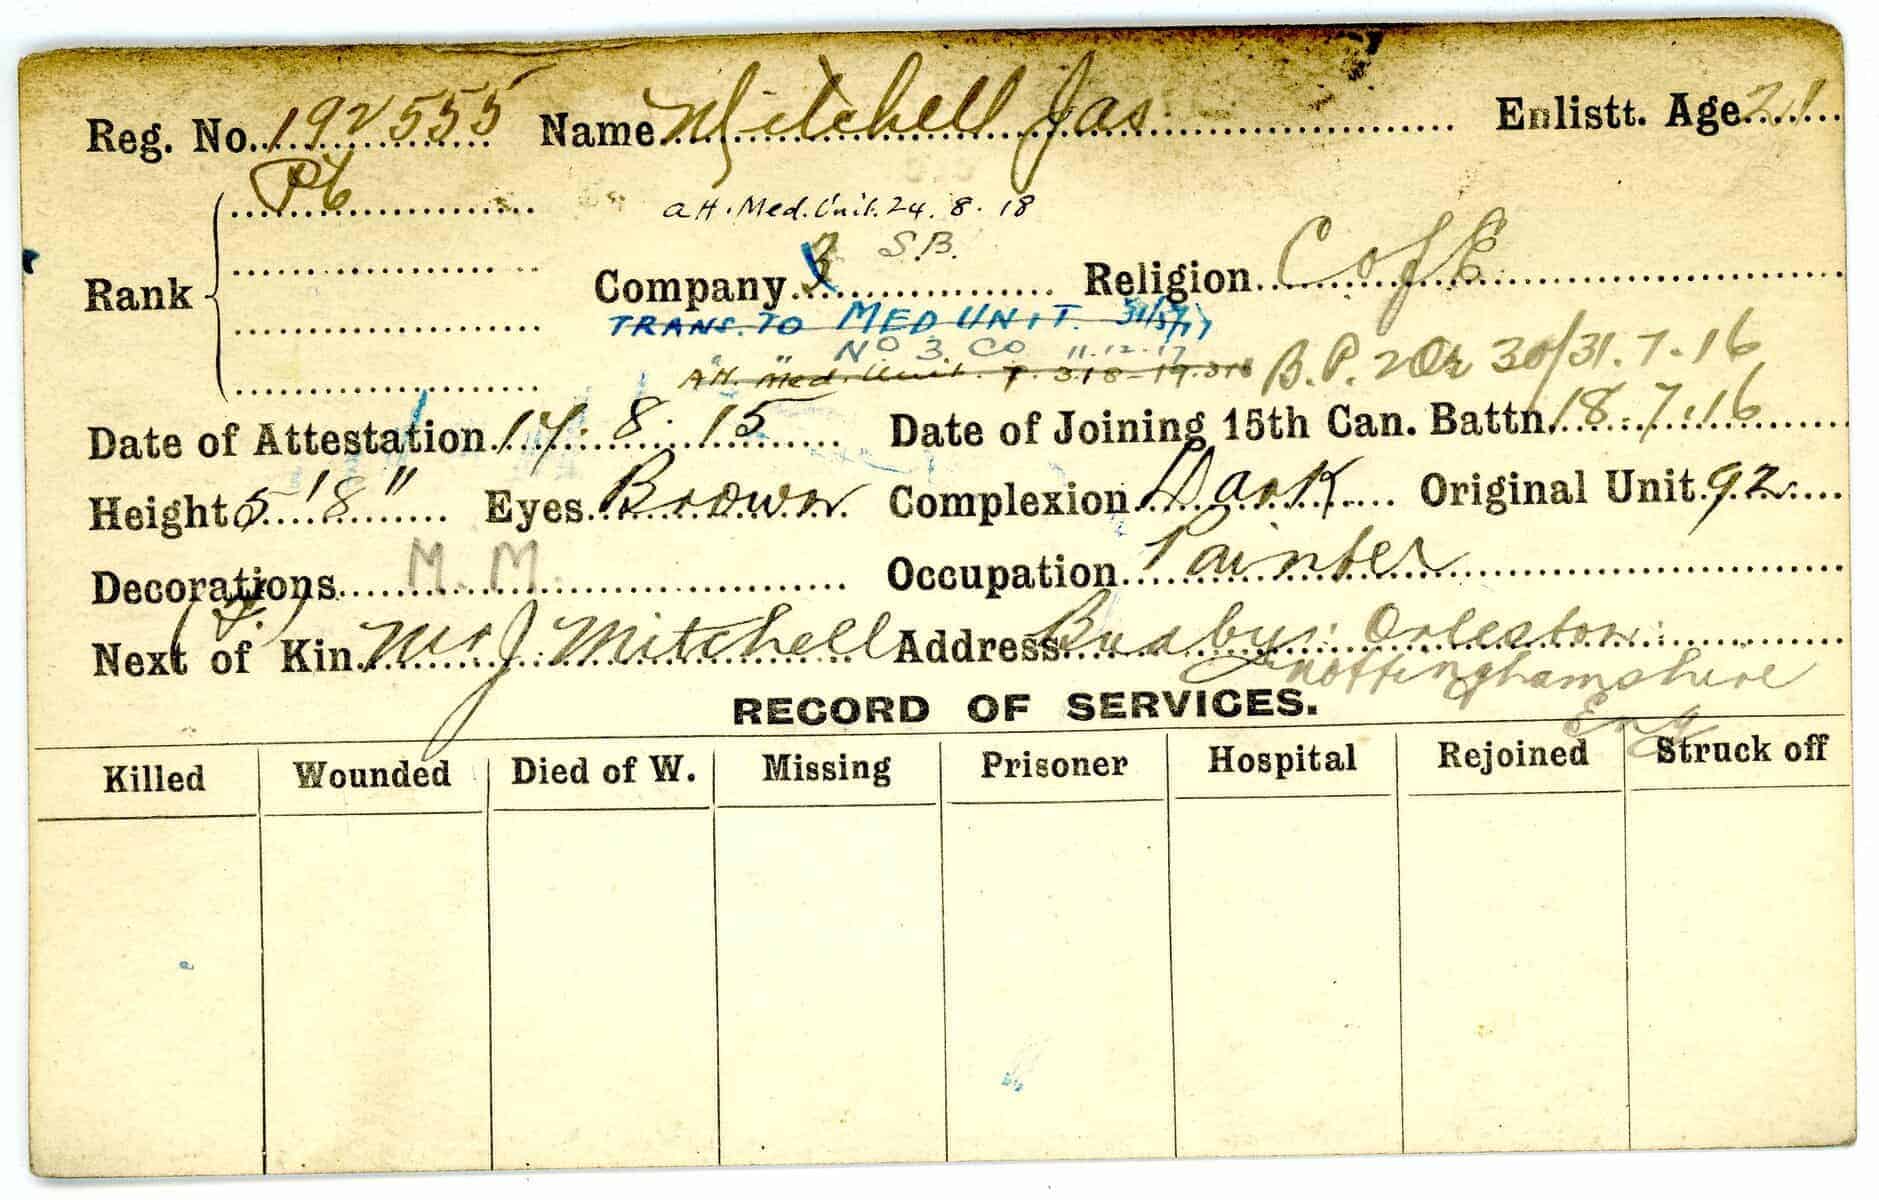 Reg. No. 192555 Name Mitchell Jas Enlistt. Age 21
Pte
att. Med. Unit. 24. 8. 18
S.B.
Rank Company 3 Religion C of E
TRANS. TO MED UNIT.
No 3 Co 11.12.17
Att. Med. Unit. B.P. 2 Or 30/31.7.16
Date of Attestation 14.8.15 Date of Joining 15th Can. Battn. 18.7.16
Height 5'8" Eyes Brown Complexion Dark Original Unit 92
Decorations M.M. Occupation Painter
(F.)
Next of Kin Mr J. Mitchell Address Orleston
Nottinghamshire
Eng
RECORD OF SERVICES.
Killed Wounded Died of W. Missing Prisoner Hospital Rejoined Struck off